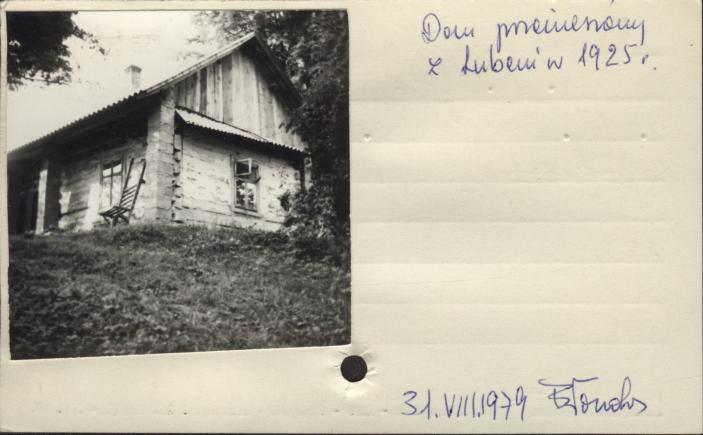 Dom przeniesiony
z Lubeni w 1925 r.
31.VIII.1979